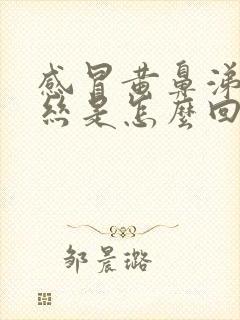 感冒黄鼻涕
絲是怎麼回
邹晨璐